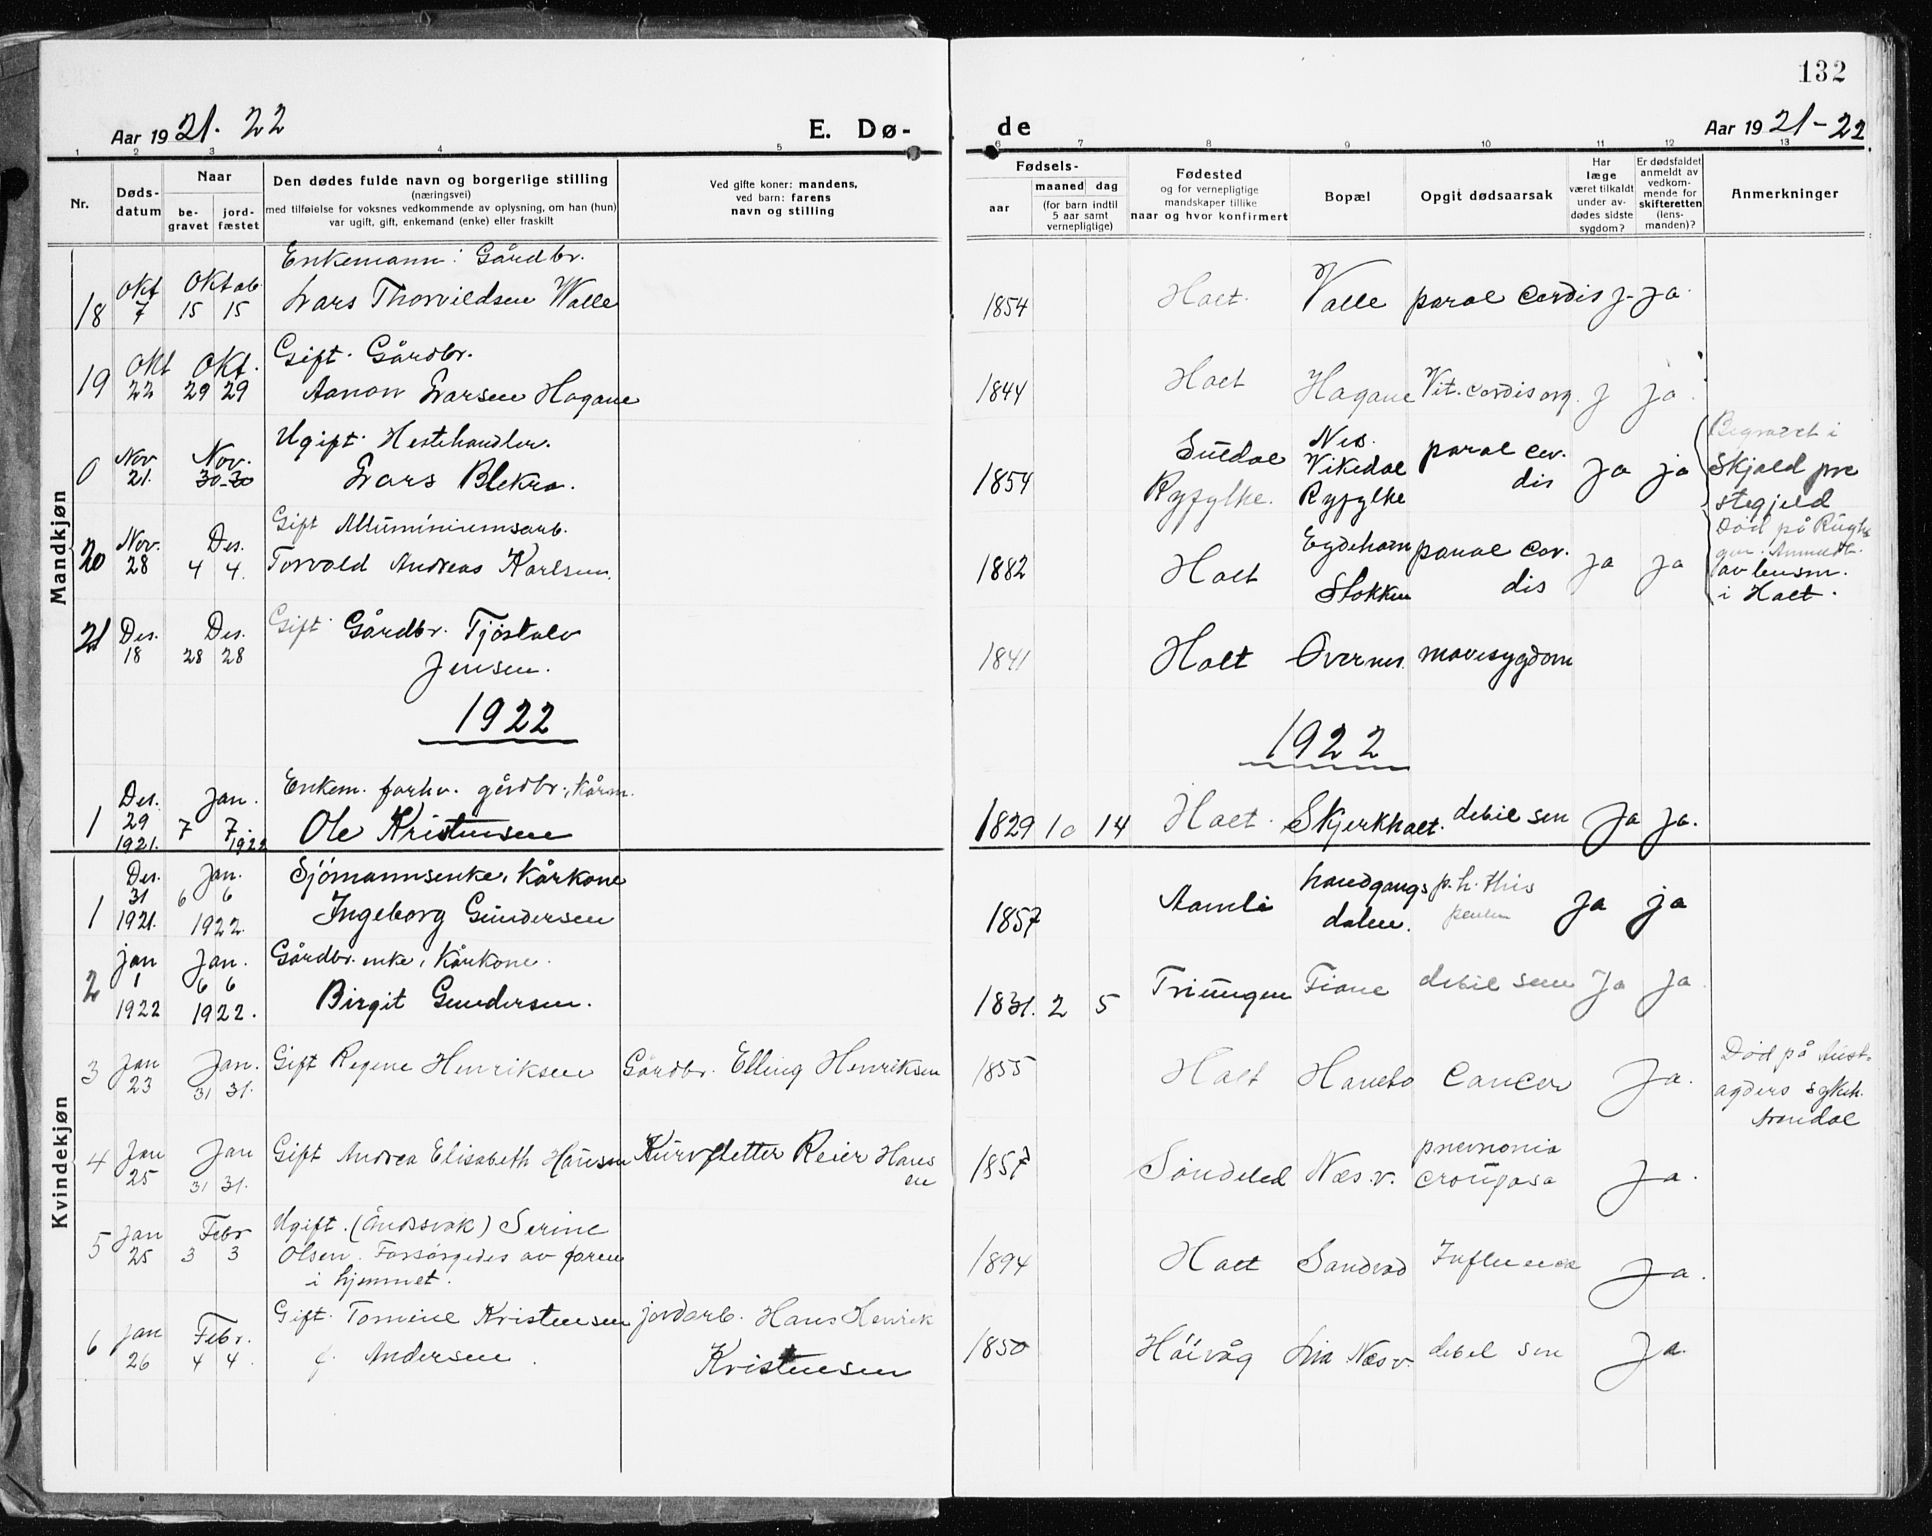 132
Aar 1921. 22
E. Dø-
de
Aar 1921-22
1 2 3 4 5
6 7 8 9 10 11 12 13
Nr.
Døds-
datum
Naar
be-
gravet
jord-
fæstet
Den dødes fulde navn og borgerlige stilling
(næringsvei)
med tilføielse for voksnes vedkommende av oplysning, om han (hun)
var ugift, gift, enkemand (enke) eller fraskilt
Ved gifte koner: mandens,
ved barn: farens
navn og stilling
Fødsels-
aar
maaned dag
(for barn indtil
5 aar samt
vernepligtige)
Fødested
og for vernepligtige
mandskaper tillike
naar og hvor konfirmert
Bopæl
Opgit dødsaarsak
Har
læge
været tilkaldt
under av-
dødes sidste
sygdom?
Er dødsfaldet
anmeldt av
vedkom-
mende for
skifteretten
(lens-
manden)?
Anmerkninger
Mandkjøn
Enkemann: Gårdbr.
18 Okt 7 Oktob 15 15 Lars Thorvildsen Walle 1854 Holt. Valle paral cordis J. ja.
Gift. Gårdbr.
19 Okt 22 Okt. 29 29 Aanon Larsen Hagane 1844 Holt Hagane Vit. cordis org. J ja.
Ugift. Hestehandler.
0 Nov 21. Nov. 30-30 Lars Blekra. 1854 Suldal
Ryfylke. Nes.
Vikedal
Ryfylke paral cor.
dis ja ja Begravet i
Skjold pre
stegjeld
Gift Alluminiumsarb.
20 Nov. 28 Des. 4 4. Torvald Andreas Karlsen. 1882 Holt Eydehavn
Stokken paral cor.
dis ja ja Død på
av lensm.
i Holt.
21 Des. 18 Des. 28 28 Gift Gårdbr. Tjøstolv
Jensen. 1841 Holt Overnes. mavesygdom
1922
1922
Enkem. forhv. gårdbr., kårm.
1 Des. 29 1921. Jan. 7 7. 1922 Ole Kristensen 1829 10 14 Holt. Skjerkholt. debil sen Ja ja.
Kvindekjøn
Sjömannsenke, kårkone
1 Des. 31 1921. Jan. 6 6 1922. Ingeborg Gundersen 1857 Aamli haudgangs
dalen. p.h. this ja ja
Gårdbr. enke, kårkone.
2 jan 1 1922 Jan. 6 6 1922. Birgit Gundersen. 1831. 2 5 Triungen Fiane debil sen Ja Ja.
3 Jan 23 Jan. 31 31. Gift Regene Henriksen Gårdbr. Elling Henriksen 1855 Holt Haneto Cancer Ja. Død på Aust-
agders sykeh.
Arendal
4 Jan 25 Jan 31 31. Gift Andrea Elisabeth Hansen Kurvfletter Reier Hans
en 1857 Søndeled Næs.v. pnevmonia
crouposa Ja.
5 Jan 25 Febr 3 3 Ugift. (Åndssvak) Serine
Olsen. Forsørgedes av faren
i hjemmet. 1894 Holt Sandvad Influensa Ja.
6 Jan 26 Febr. 4 4. Gift. Tomine Kristensen
f. Andersen. jordarb. Hans Henrik
Kristensen 1850 Höivåg Lia Næsv. debil sen Ja.